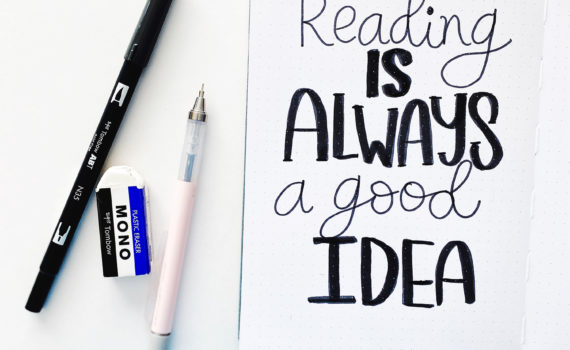 Reading
IS
ALWAYS
a good
IDEA
Tombow ABT
N35
PLASTIC ERASER
MONO
Tombow